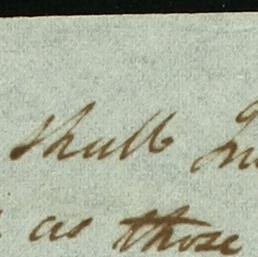 shall
as those